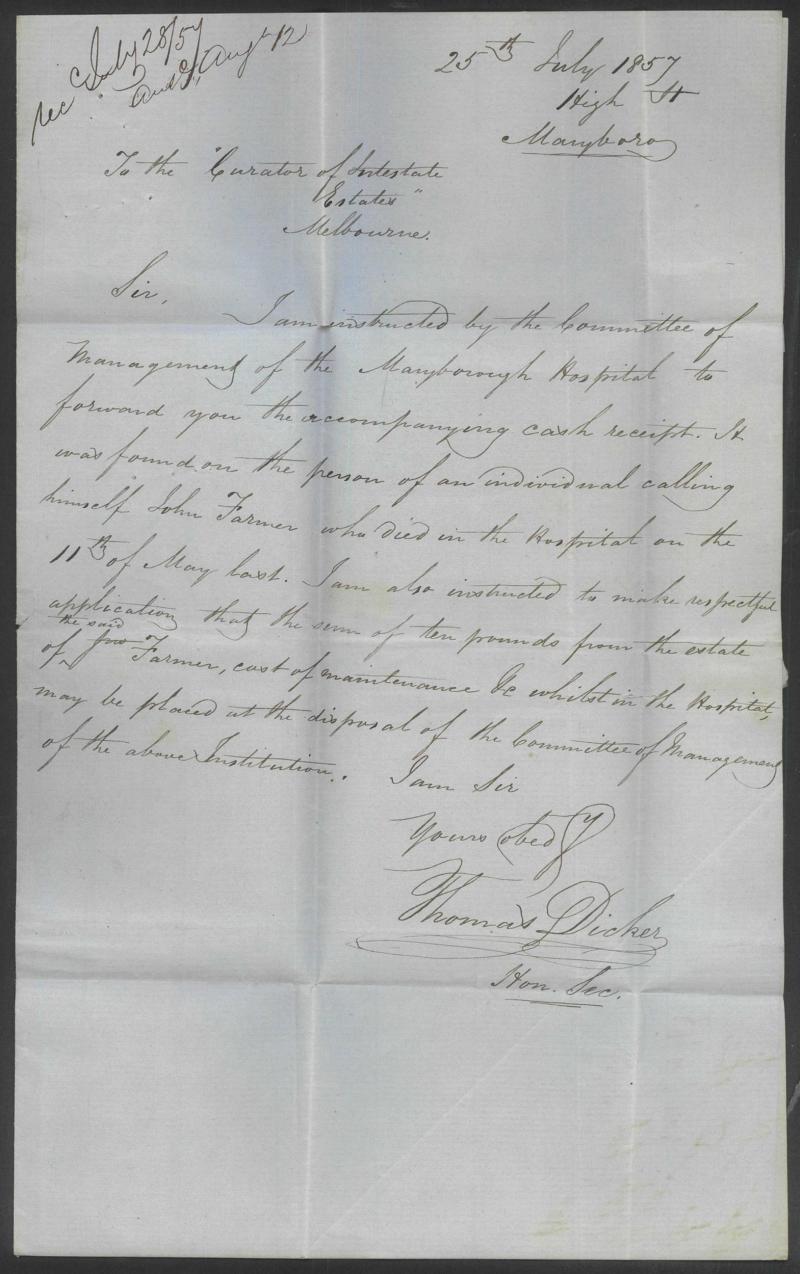 rec July 28/57
ansd, Augt 12
25th July 1857
High St
Maryboro
To the "Curator of Intestate
Estates"
Melbourne.
Sir,
I am instructed by the Committee of
Management of the Maryborough Hospital to
forward you the accompanying cash receipt. It
was found on the person of an individual calling
himself John Farmer who died in the Hospital on the
11th of May last. I am also instructed to make respectful
application that the sum of ten pounds from the estate
of the said Farmer, cost of maintenance &c whilst in the Hospital,
may be placed at the disposal of the Committee of Management
of the above Institution.
I am Sir
Yours obedy
Thomas Dicker
Hon. Sec.